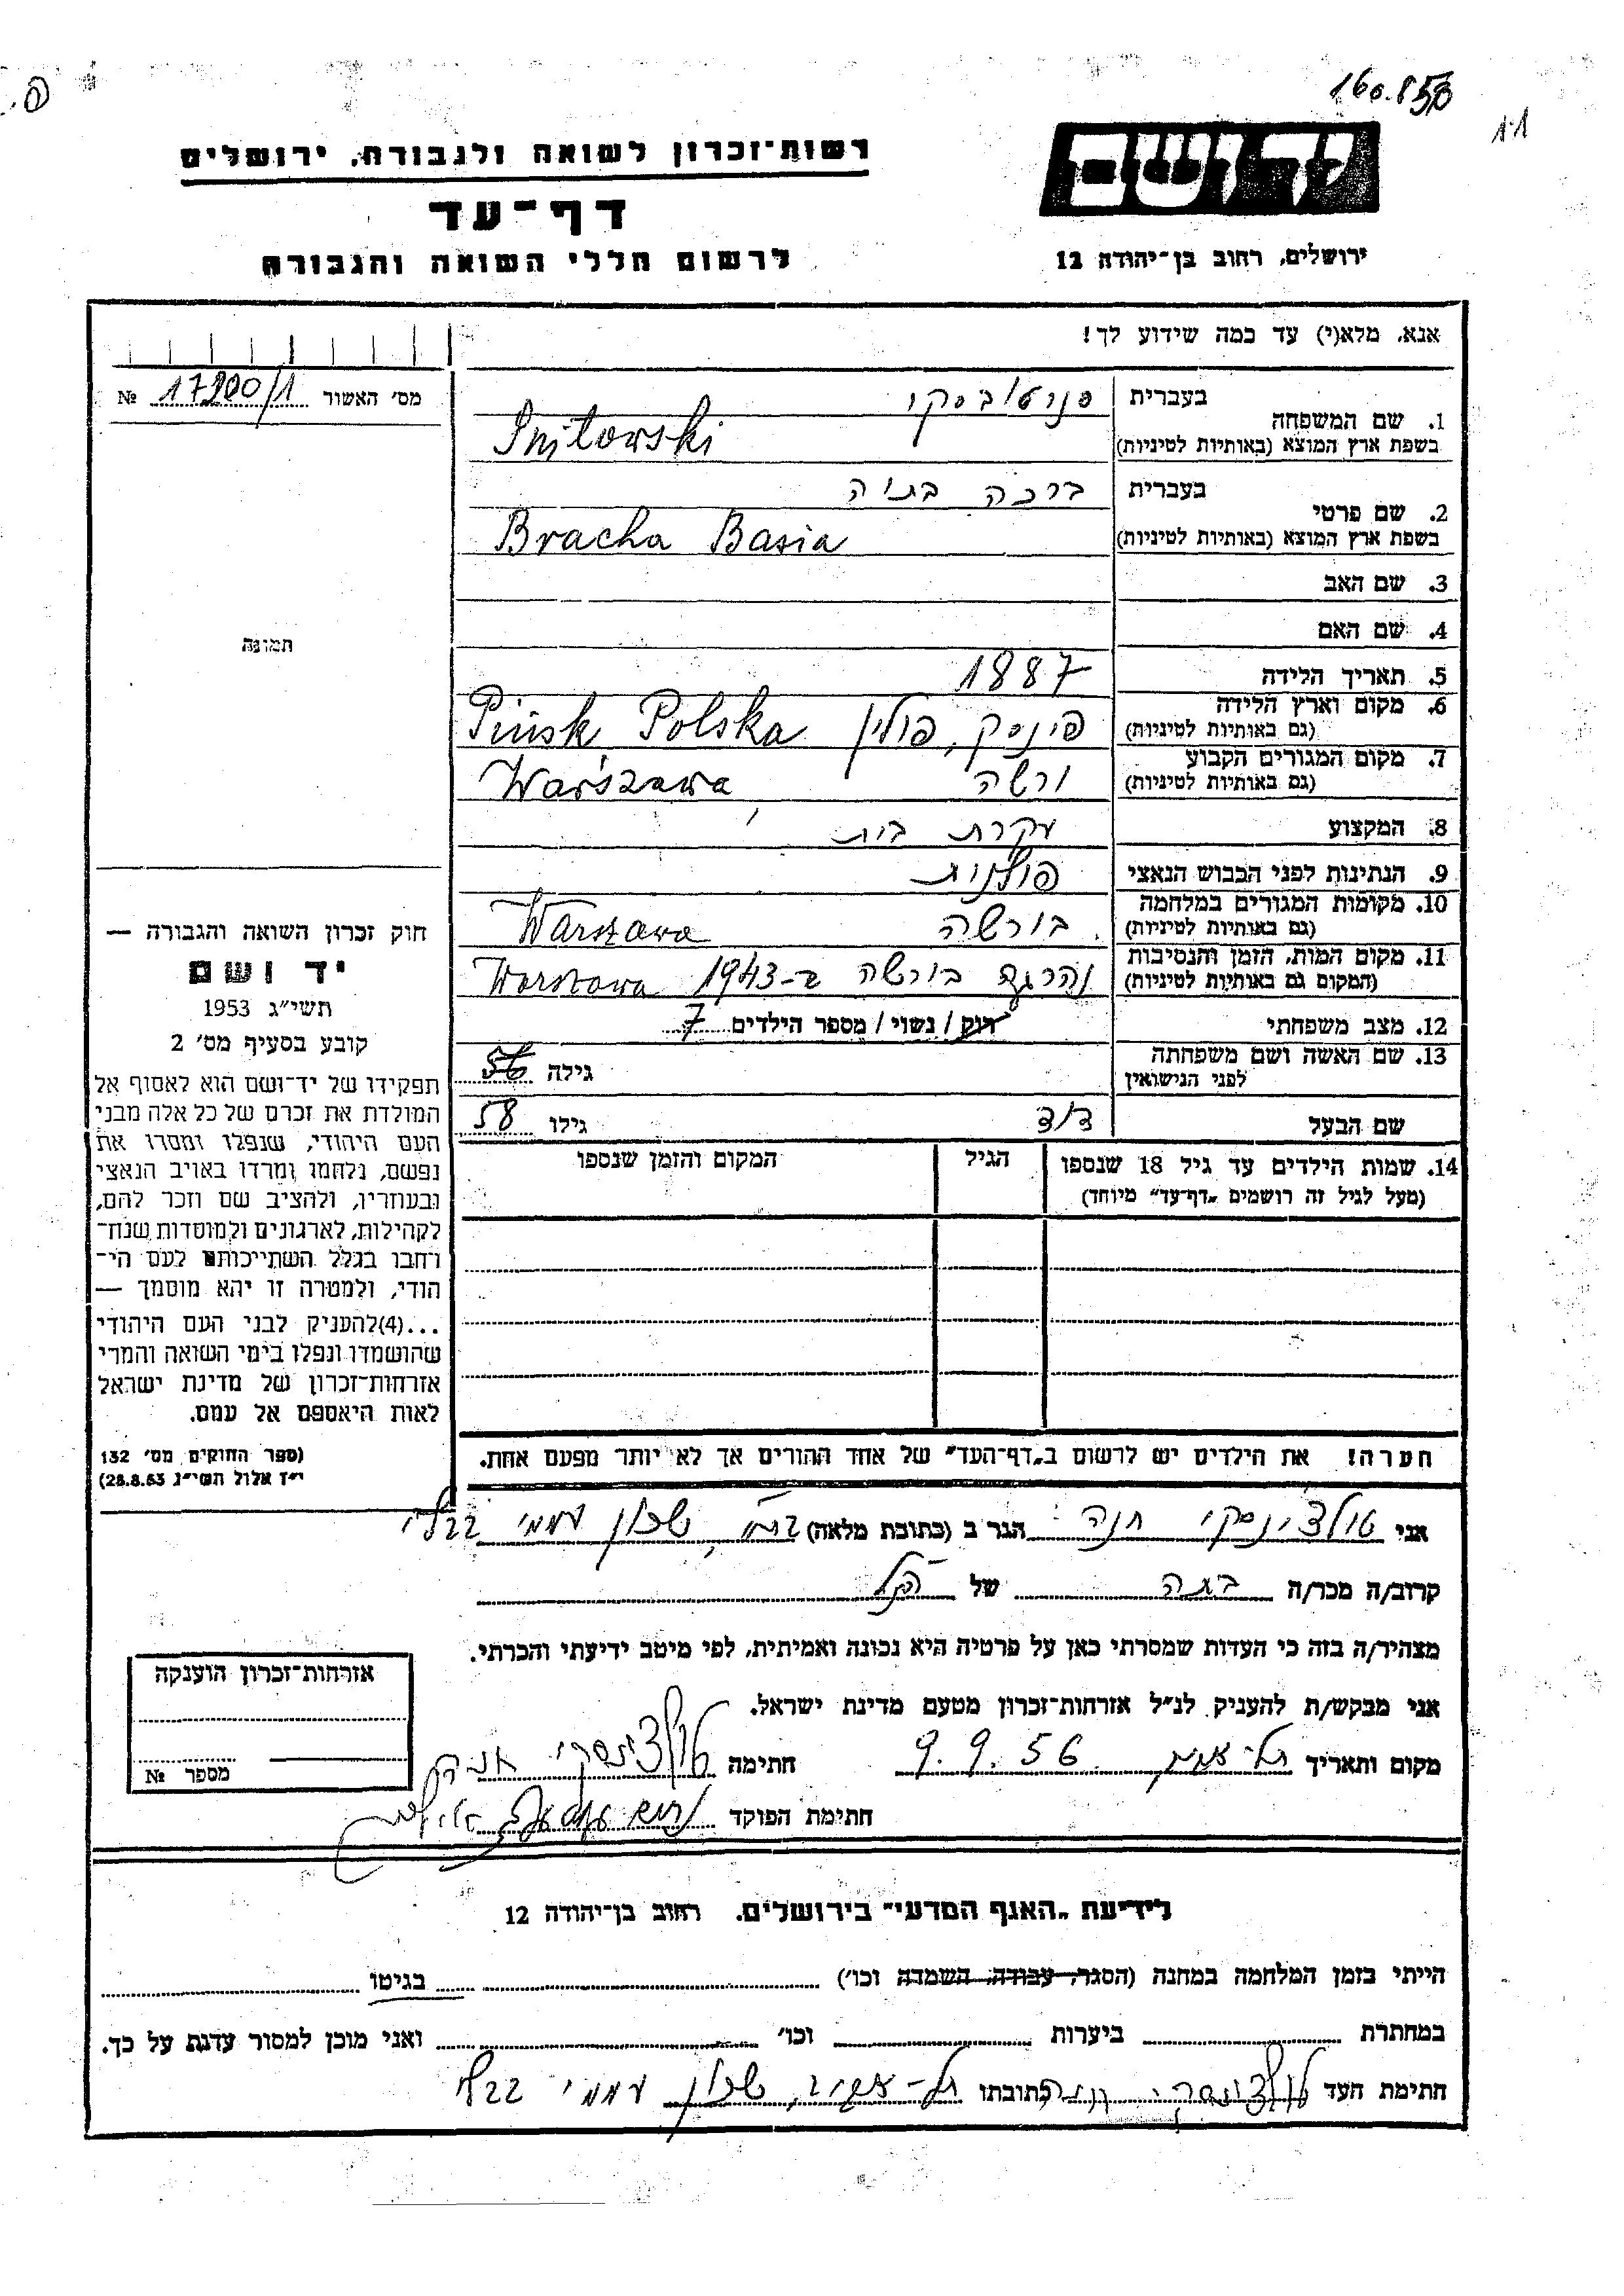 160.853
רשות־זכרון לשואה ולגבורה, ירושלים
יד ושם
דף־עד
לרשום חללי השואה והגבורה
ירושלים, רחוב בן־יהודה 12
אנא, מלא(י) עד כמה שידוע לך!
מס׳ האשור 17200/1 №
1. שם המשפחה
בעברית סניטובסקי
בשפת ארץ המוצא (באותיות לטיניות) Snitowski
2. שם פרטי
בעברית ברכה בתיה
בשפת ארץ המוצא (באותיות לטיניות) Bracha Basia
3. שם האב
4. שם האם
תמונה
5. תאריך הלידה 1887
6. מקום וארץ הלידה
(גם באותיות לטיניות) פינסק, פולין Pińsk Polska
7. מקום המגורים הקבוע
(גם באותיות לטיניות) ורשה Warszawa
8. המקצוע עקרת בית
9. הנתינות לפני הכבוש הנאצי פולנית
10. מקומות המגורים במלחמה
(גם באותיות לטיניות) בורשה Warszawa
11. מקום המות, הזמן והנסיבות
(המקום גם באותיות לטיניות) נהרגה בורשה ב-1943 Warszawa
12. מצב משפחתי רוק / נשוי / מספר הילדים 7
13. שם האשה ושם משפחתה
לפני הנישואין גילה 56
שם הבעל דוד גילו 58
14. שמות הילדים עד גיל 18 שנספו
(מעל לגיל זה רושמים „דף־עד״ מיוחד)
הגיל
המקום והזמן שנספו
חוק זכרון השואה והגבורה —
יד ושם
תשי״ג 1953
קובע בסעיף מס׳ 2
תפקידו של יד־ושם הוא לאסוף אל
המולדת את זכרם של כל אלה מבני
העם היהודי, שנפלו ומסרו את
נפשם, נלחמו ומרדו באויב הנאצי
ובעוזריו, ולהציב שם וזכר להם,
לקהילות, לארגונים ולמוסדות שנח־
רחבו בגלל השתייכותם לעם הי־
הודי, ולמטרה זו יהא מוסמך —
...(4)להעניק לבני העם היהודי
שהושמדו ונפלו בימי השואה והמרי
אזרחות־זכרון של מדינת ישראל
לאות היאספם אל עמם.
(ספר החוקים מס׳ 132
י״ז אלול תשי״ג 28.8.53)
הערה! את הילדים יש לרשום ב„דף־העד״ של אחד ההורים אך לא יותר מפעם אחת.
אני טולצ'ינסקי חנה הגר ב (כתובת מלאה) שכון עממי
קרוב/ה מכר/ה בתה של הנ"ל
מצהיר/ה בזה כי העדות שמסרתי כאן על פרטיה היא נכונה ואמיתית, לפי מיטב ידיעתי והכרתי.
אני מבקש/ת להעניק לנ״ל אזרחות־זכרון מטעם מדינת ישראל.
מקום ותאריך 9.9.56 חתימה טולצ'ינסקי
חתימת הפוקד
אזרחות־זכרון הוענקה
מספר №
לידיעת „האגף המדעי״ בירושלים, רחוב בן־יהודה 12
הייתי בזמן המלחמה במחנה (הסגר, עבודה, השמדה וכו׳) בגיטו
במחתרת ביערות וכו׳ ואני מוכן למסור עדות על כך.
חתימת העד טולצ'ינסקי חנה כתובתו תל-אביב, שכון עממי